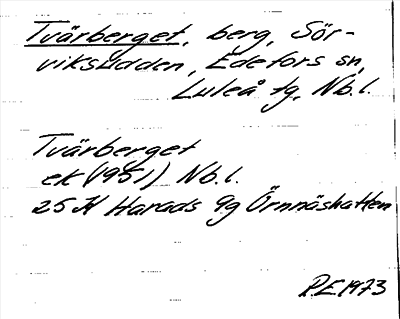 Tvärberget, berg, Sör-
viksudden, Edefors sn,
Luleå tg, Nb.l.
Tvärberget
ek (1951) Nb.l.
25 K Harads 9g Örnnäshatten
P.E 1973